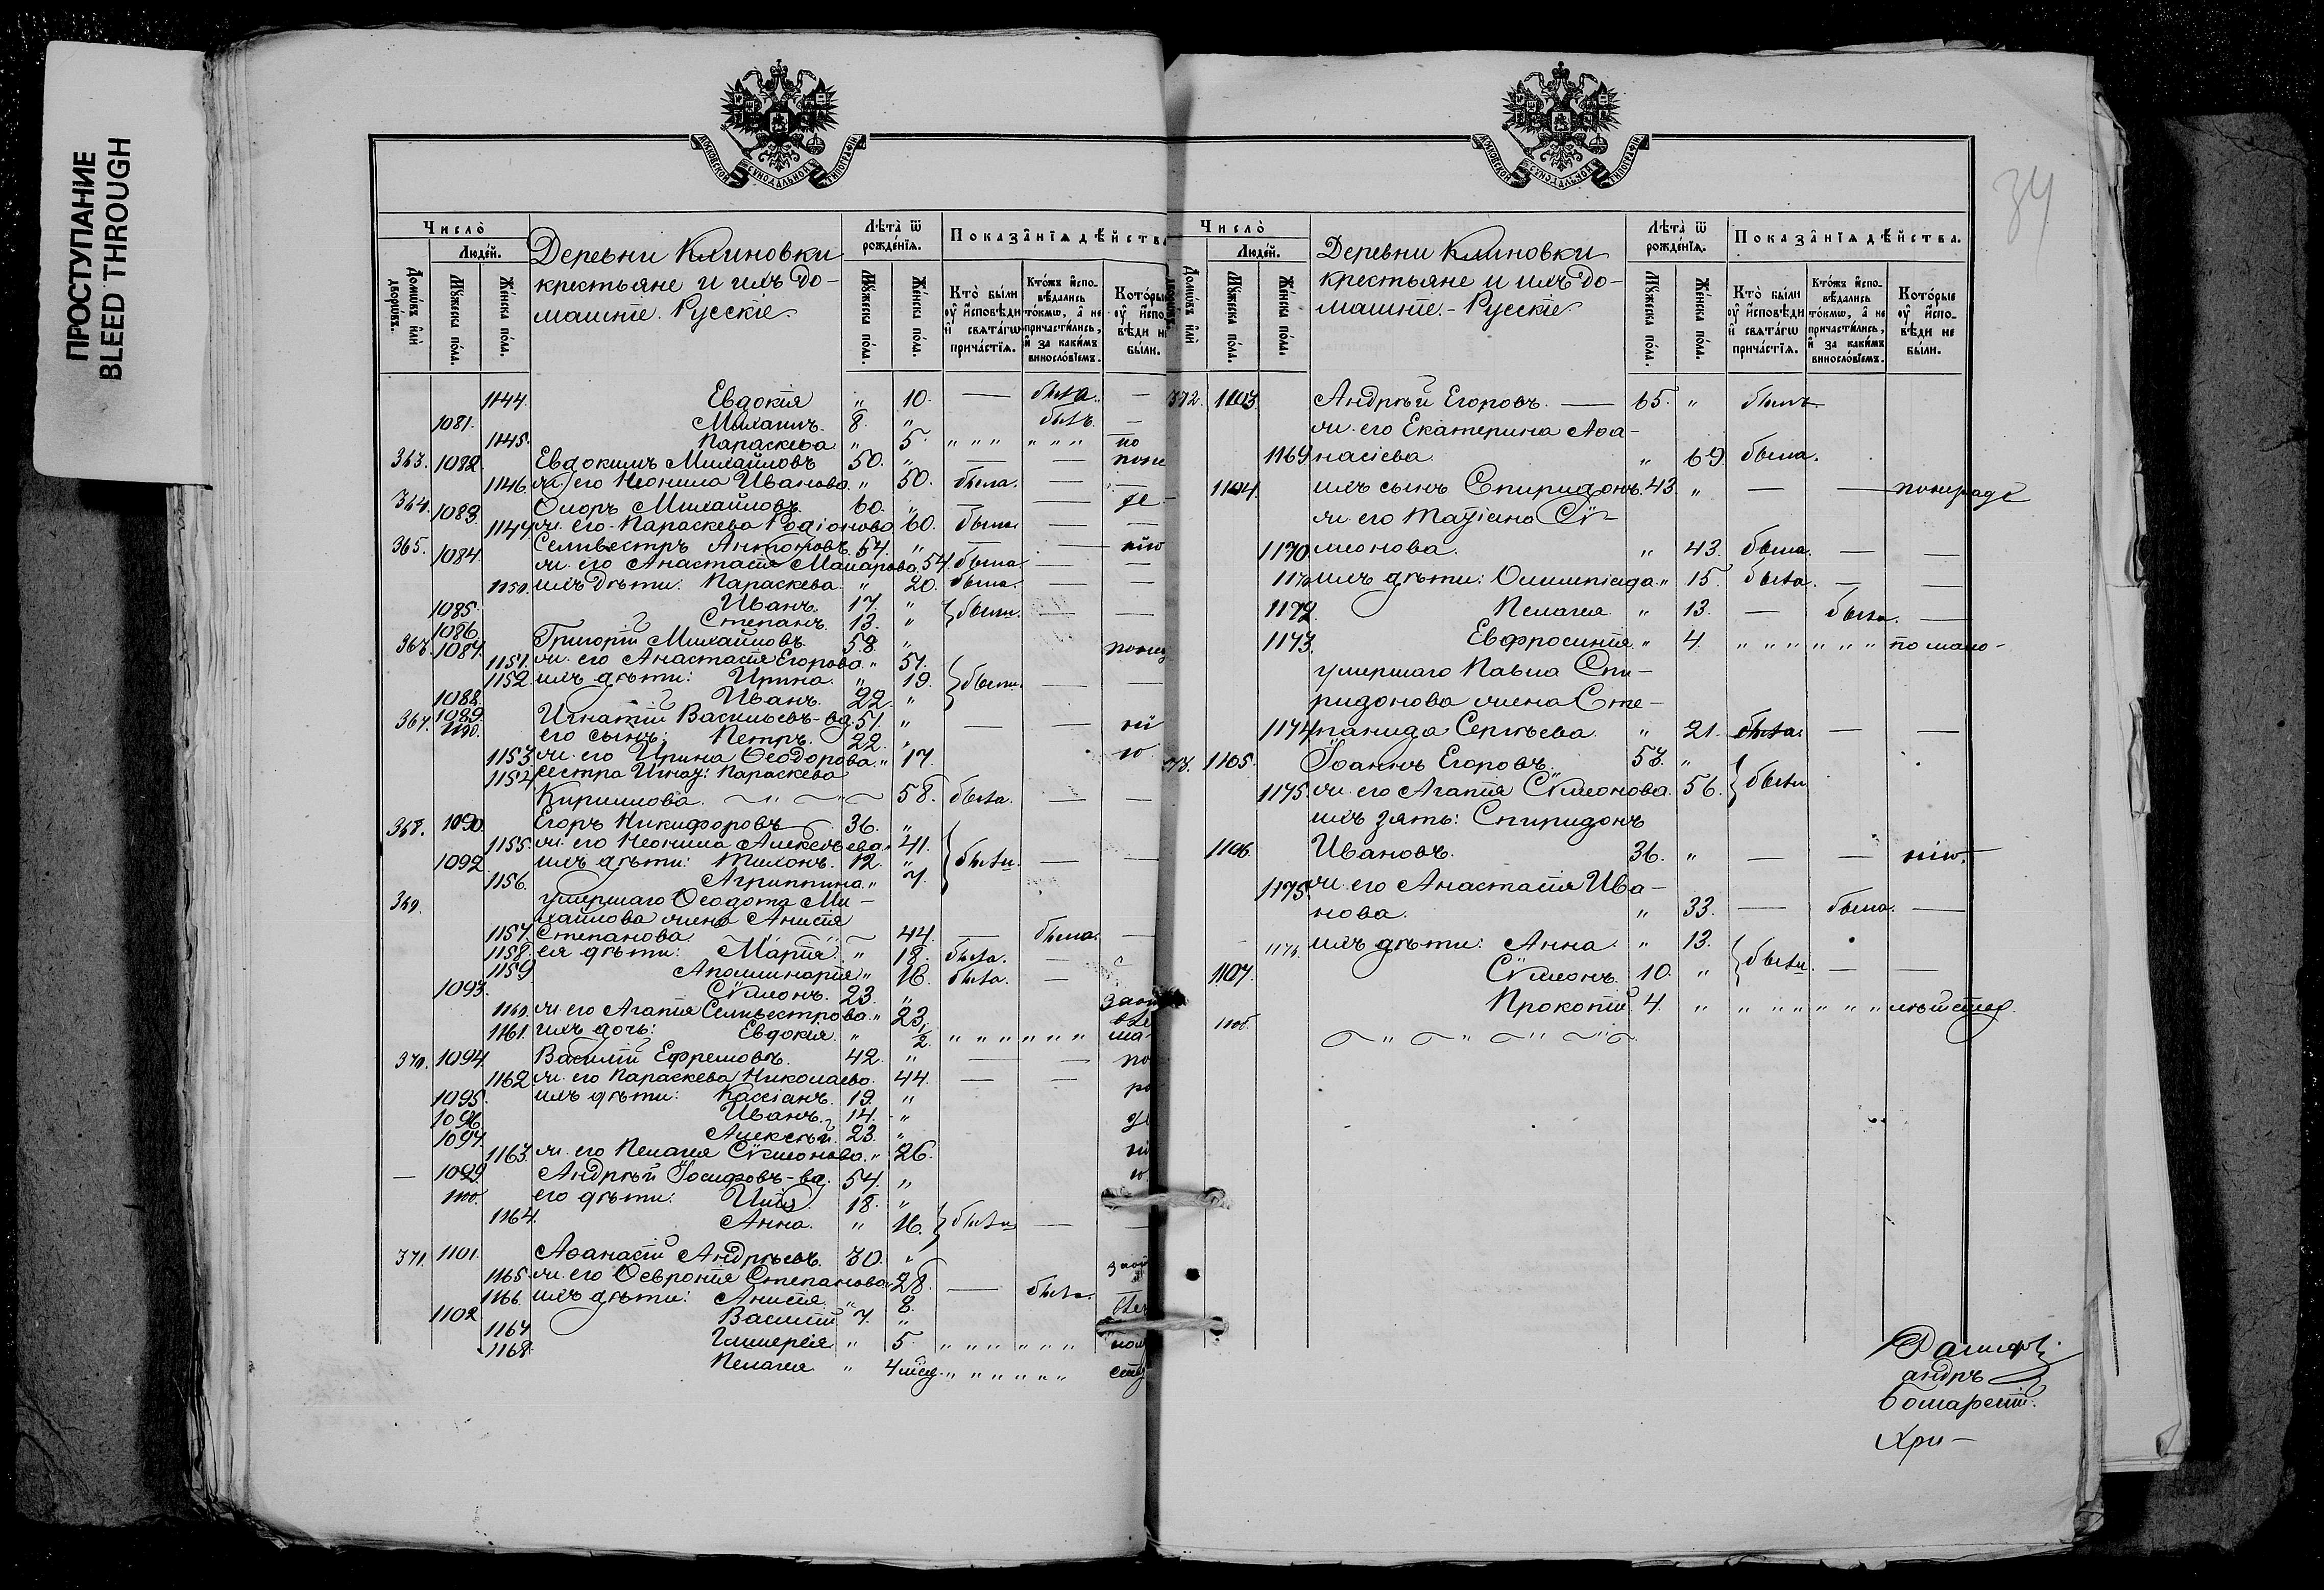 ПРОСТУПАНИЕ
BLEED THROUGH
МОСКОВСКОЙ СѴНОДАЛЬНОЙ ТИПОГРАФІИ
Число̀
Людей.
Домѡвъ или дворѡвъ.
Мужеска пола.
Женска пола.
Деревни Клиновки
крестьяне и ихъ до-
машніе. Русскіе.
Лѣта̀ ѿ рожденїѧ.
Мужеска пола.
Женска пола.
Показанїѧ дѣйства
Кто̀ были оу исповѣди и свѧтагѡ причастїѧ.
Ктожъ исповѣдались токмѡ, а не причастились, и за какимъ винословїемъ.
Которые оу исповѣди не были.
1144. Евдокія „ 10. — была. —
1081. Михаилъ. 8. „ былъ. —
1145. Параскева „ 5. „ „ „ „ „ „ по
363. 1082. Евдокимъ Михайловъ 50. „ — —
1146. ж. его Неонила Иванова. „ 50. была. — —
364. 1083. Флоръ Михайловъ. 60. „ — —
1147. ж. его Параскева Родіонова 60. была. — —
365. 1084. Селивестръ Антоновъ. 54. „ — —
ж. его Анастасія Макарова. 54. была. — —
1150. ихъ дѣти: Параскева. „ 20. была. — —
1085. Иванъ. 17. „ были. — —
1086. Степанъ. 13. „
366. 1087. Григорій Михайловъ. 58. „
1151. ж. его Анастасія Егорова. „ 51.
1152. ихъ дѣти: Ирина. „ 19. были. — —
1088. Иванъ. 22. „
367. 1089. Игнатій Васильевъ-вд. 51. „ — —
1190. его сынъ: Петръ. 22. „
1153. ж. его Ирина Ѳеодорова. „ 17.
1154. сестра Игнат: Параскева
Кириллова. 58. была. — —
368. 1090. Егоръ Никифоровъ 36. „
1155. ж. его Неонила Алексѣева. 41.
1092. ихъ дѣти: Тихонъ. 12. „ были. — —
1156. Агриппина. „ 7.
369. умершаго Ѳеодота Ми-
хайлова жена Анисія
1157. Степанова. 44. — была. —
1158. ея дѣти: Марія. „ 18. была. —
1159. Аполлинарія „ 16. была. —
1093. Сѵмеонъ. 23. „
1160. ж. его Агапія Селивестрова. „ 23.
1161. ихъ дочь: Евдокія. „ ½. „ „ „ „ „ „
370. 1094. Василій Ефремовъ. 42. „ — —
1162. ж. его Параскева Николаева. 44. — —
1095. ихъ дѣти: Кассіанъ. 19. „
1096. Иванъ. 14. „
1097. Алексѣй. 23. „
1163. ж. его Пелагея Сѵмеонова. „ 26.
— 1099. Андрѣй Іосифовъ-вд. 54. „
1100. его дѣти: Илія. 18. „
1164. Анна. „ 16. были — —
371. 1101. Аѳанасій Андрѣевъ. 30. „
1165. ж. его Ѳевронія Степанова 28. — была. —
1166. ихъ дѣти: Анисія. „ 8.
1102. Василій 7. „
1167. Гликерія „ 5. „ „ „ „ „ „
1168. Пелагея „ 4 мѣс. „ „ „ „ „ „
34
МОСКОВСКОЙ СѴНОДАЛЬНОЙ ТИПОГРАФІИ
Число̀
Людей.
Домѡвъ или дворѡвъ.
Мужеска пола.
Женска пола.
Деревни Клиновки
крестьяне и ихъ до-
машніе. - Русскіе
Лѣта̀ ѿ рожденїѧ.
Мужеска пола.
Женска пола.
Показанїѧ дѣйства.
Кто̀ были оу исповѣди и свѧтагѡ причастїѧ.
Ктожъ исповѣдались токмѡ, а не причастились, и за какимъ винословїемъ.
Которые оу исповѣди не были.
372. 1103. Андрѣй Егоровъ. — 65. „ былъ.
ж. его Екатерина Аѳа-
1169. насіева. „ 69. была.
1104. ихъ сынъ Спиридонъ. 43. „ — —
ж. его Татіана Сѵ-
1170. меонова. „ 43. была. — —
1171. ихъ дѣти: Олимпіада. „ 15. была. — —
1172. Пелагея. „ 13. — была. —
1173. Евфросинія. „ 4. „ „ „ „ „ „ по мало-
умершаго Павла Спи-
ридонова жена Сте-
1174. панида Сергѣева. „ 21. была. — —
373. 1105. Іоаннъ Егоровъ. 53. „
1175. ж. его Агапія Сѵмеонова. 56. были
ихъ зять: Спиридонъ
1106. Ивановъ. 36. „ — —
1175. ж. его Анастасія Ива-
нова. „ 33. — была. —
1176. ихъ дѣти: Анна. „ 13.
1107. Сѵмеонъ. 10. „ были. — —
1108. Прокопій 4. „ „ „ „ „ „ „
Хри-